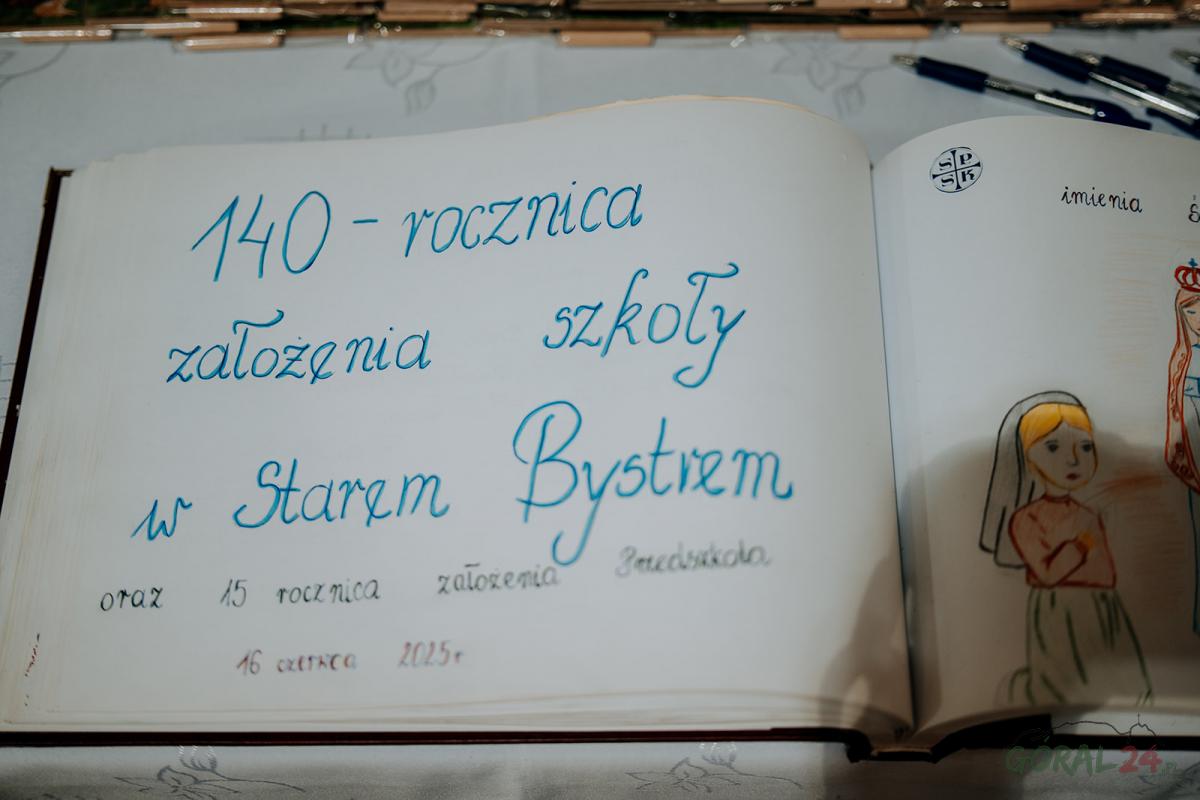 140 - rocznica
założenia szkoły
w Starem Bystrem
oraz 15 rocznica założenia Przedszkola
16 czerwca 2025r
SPSK
imienia
GÓRAL24